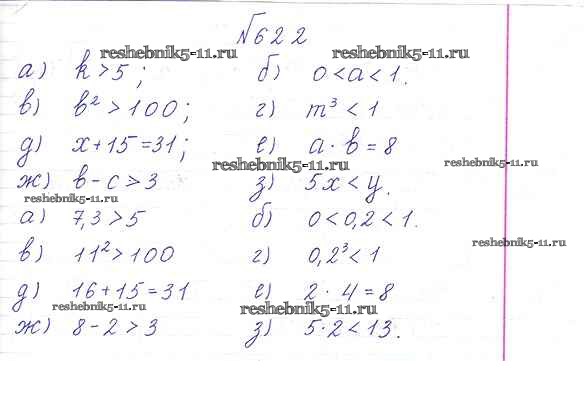 №622
reshebnik5-11.ru reshebnik5-11.ru
а) k>5; б) 0<a<1.
в) b²>100; г) m³<1
д) x+15=31; е) a·b=8
reshebnik5-11.ru reshebnik5-11.ru
ж) b-c>3 з) 5x<y.
reshebnik5-11.ru
а) 7,3>5 б) 0<0,2<1.
reshebnik5-11.ru
в) 11²>100 г) 0,2³<1
д) 16+15=31 е) 2·4=8
reshebnik5-11.ru reshebnik5-11.ru
ж) 8-2>3 з) 5·2<13.